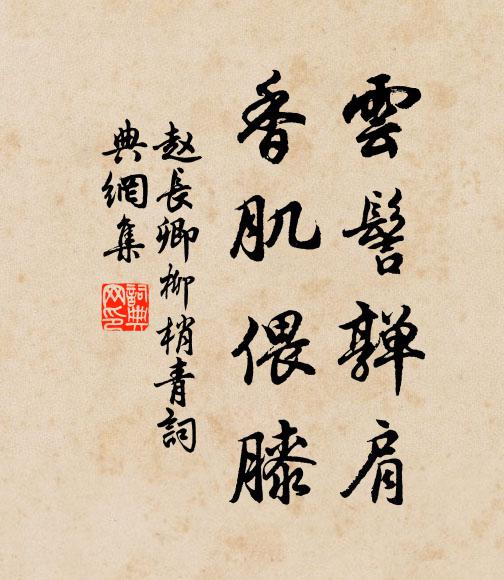 雲髻亸肩
香肌偎膝
赵長卿柳梢青詞
典網集
詞典
网印